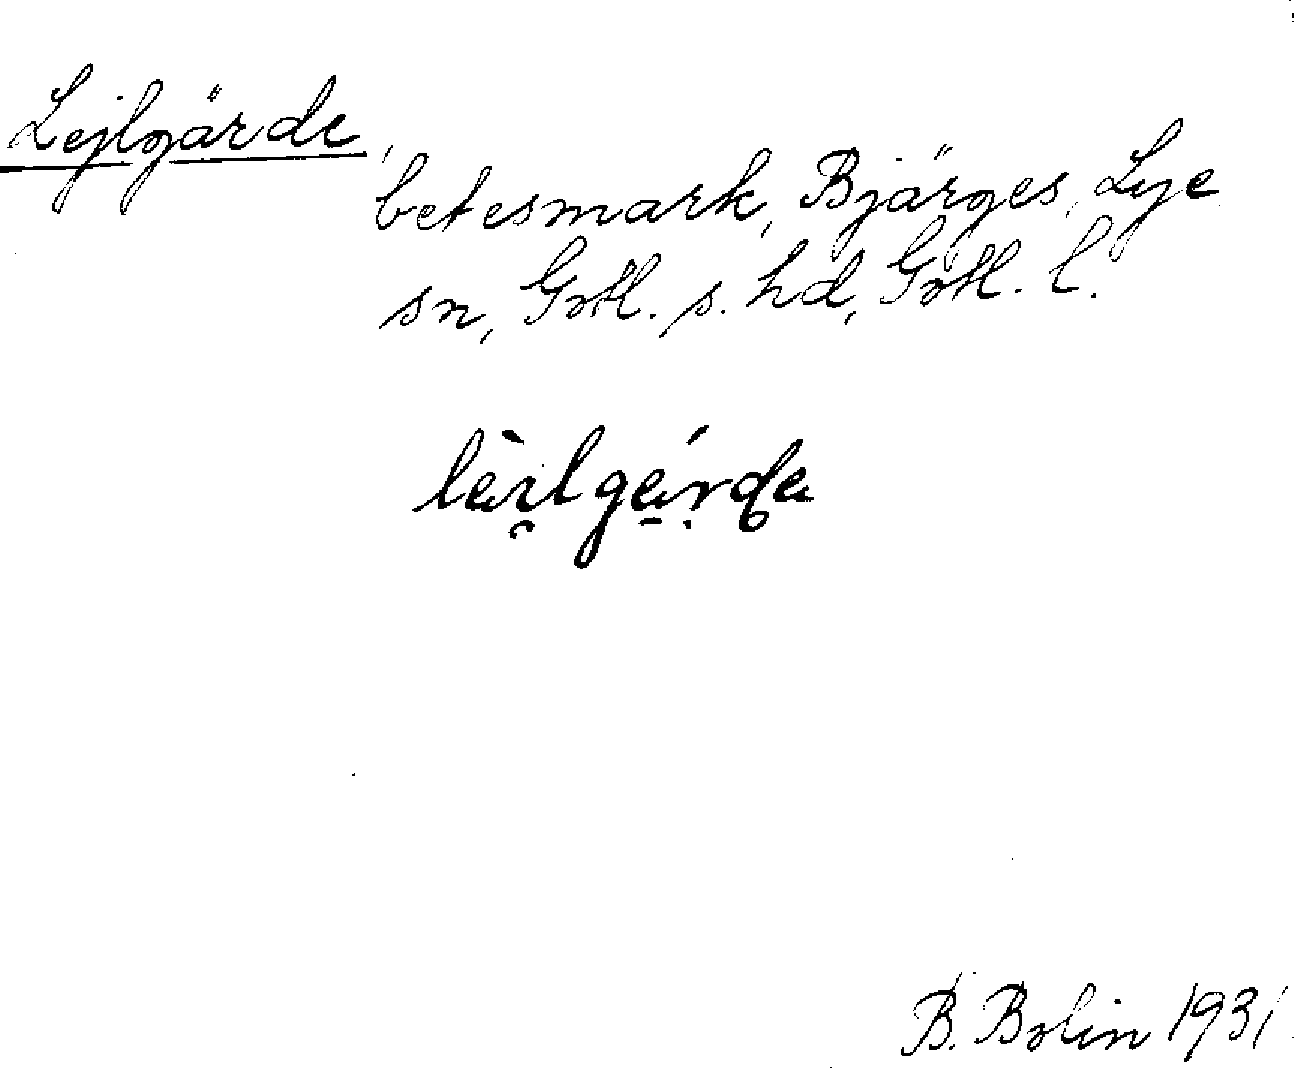 Lejlgärde,
betesmark, Bjärges, Lye
sn, Gotl. s. hd, Gotl. l.
B. Bolin 1931